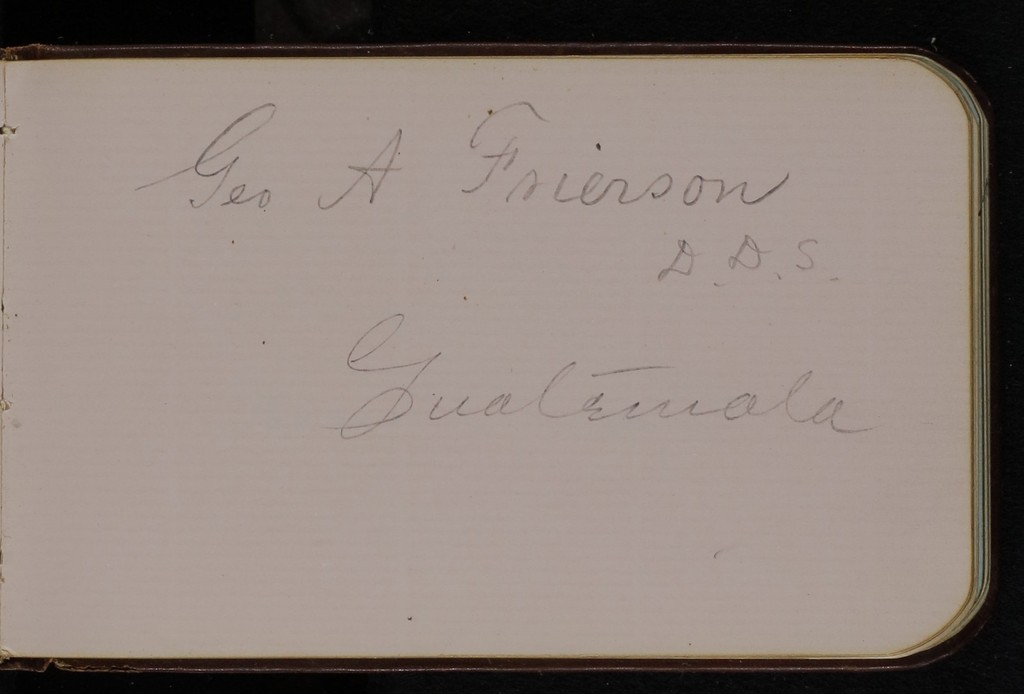 Geo A Frierson
D.D.S.
Guatemala